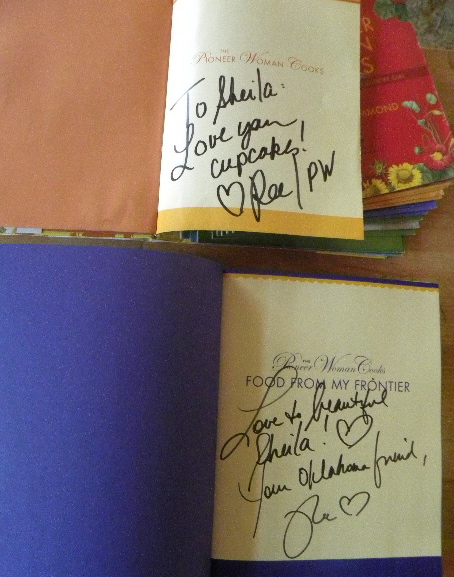 THE
PIONEER WOMAN COOKS
To Sheila:
Love your
cupcakes!
♡ Ree / PW
MOND
THE
Pioneer Woman Cooks
FOOD FROM MY FRONTIER
Love to beautiful
Sheila! ♡
Your Oklahoma friend,
Ree ♡